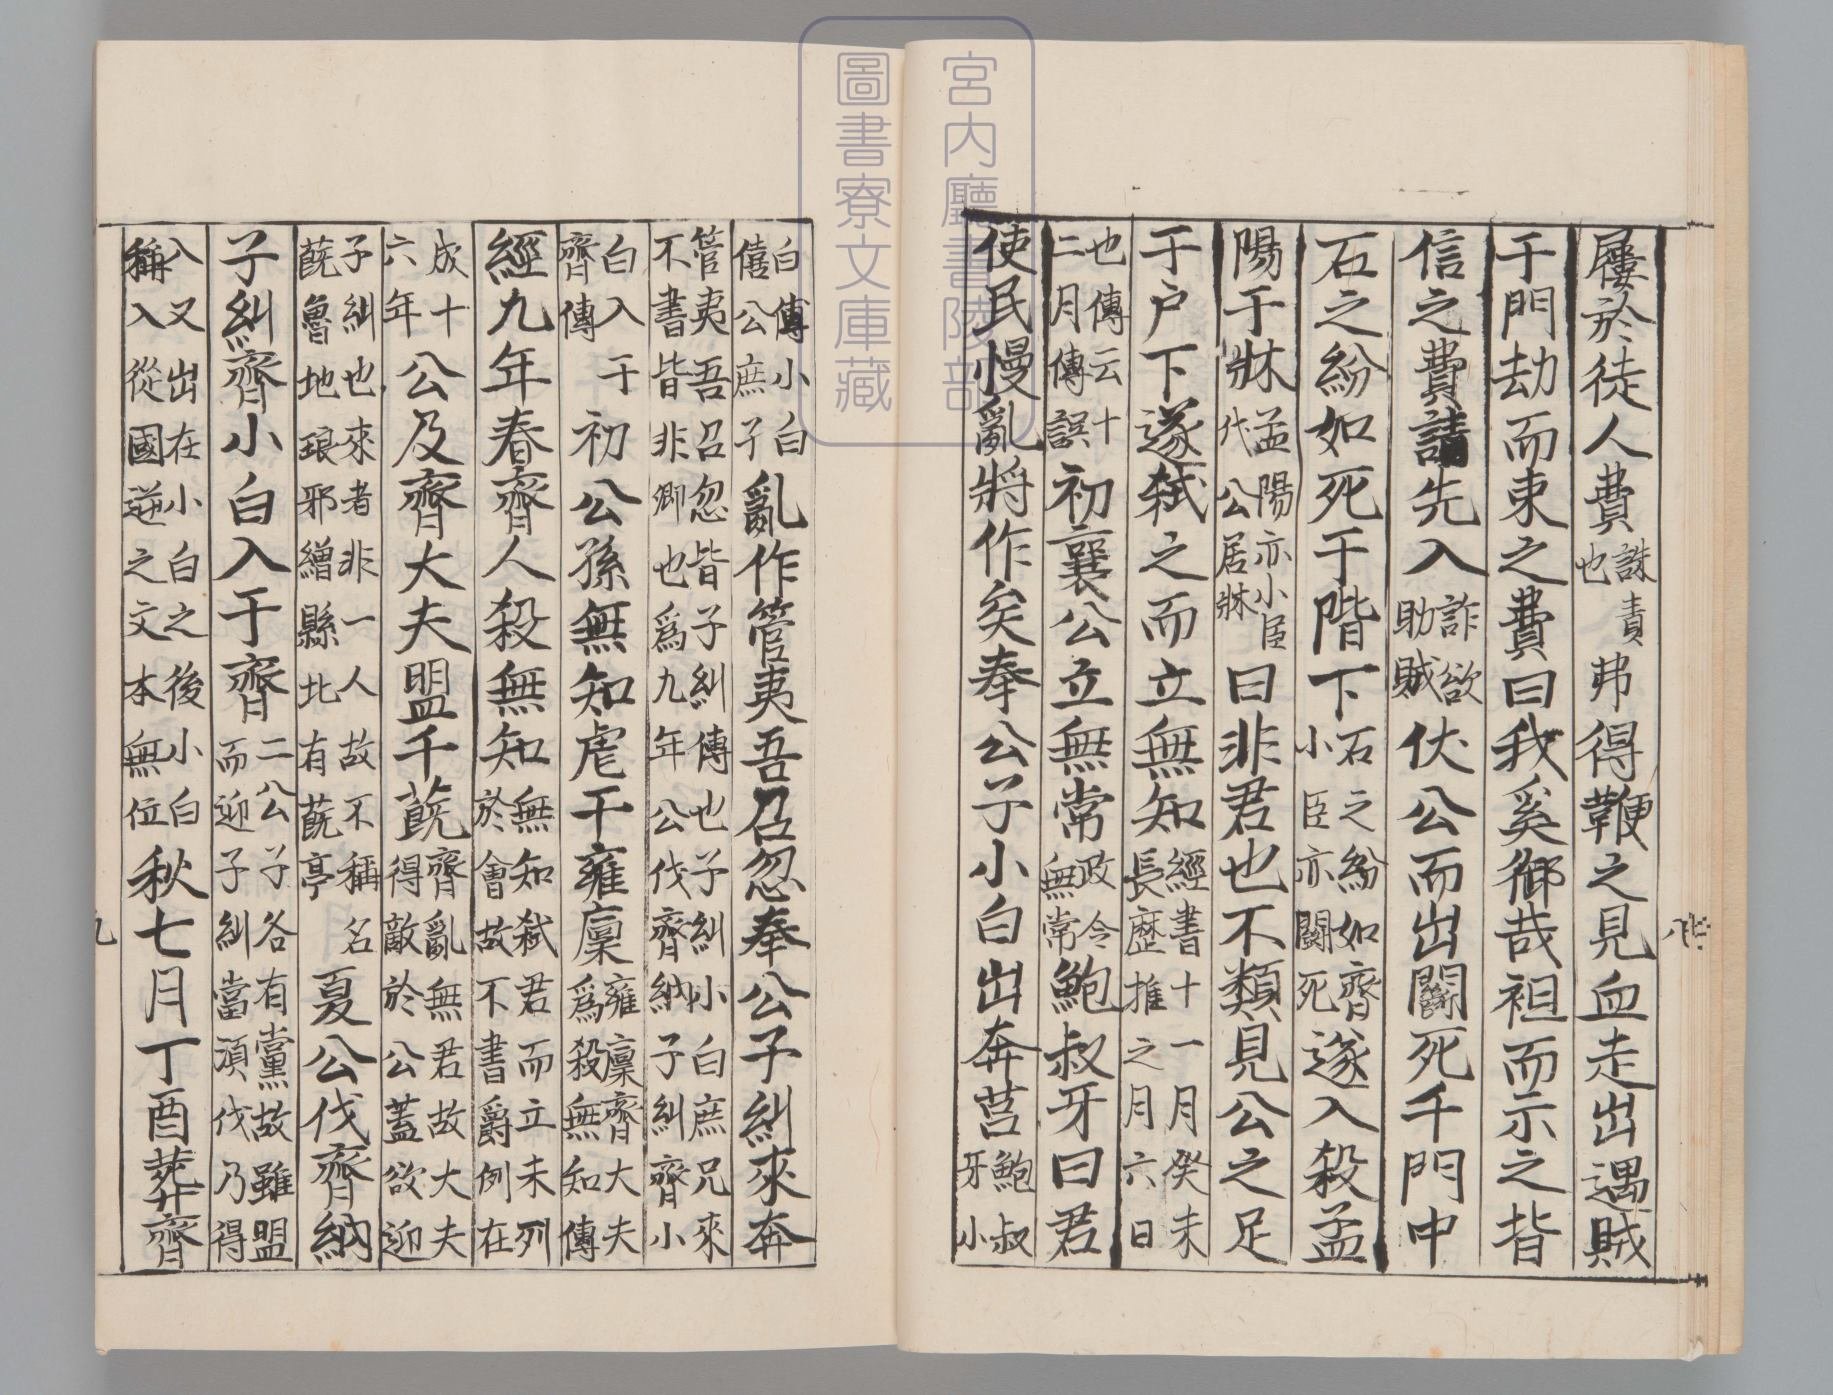 屨於徒人費誅責也弗得鞭之見血走出遇賊
于門劫而束之費曰我奚御哉袒而示之背
信之費請先入詐欲助賊伏公而出鬭死于門中
石之紛如死于階下石之紛如齊小臣亦鬭死遂入殺孟
陽于牀孟陽亦小臣代公居牀曰非君也不類見公之足
于户下遂弒之而立無知經書十一月癸未長歷推之月六日
也傳云十二月傳誤初襄公立無常政令無常鮑叔牙曰君
使民慢亂將作矣奉公子小白出奔莒鮑叔牙小
白傅小白僖公庶子亂作管夷吾召忽奉公子糾來奔
管夷吾召忽皆子糾傅也子糾小白庶兄來不書皆非卿也爲九年公伐齊納子糾齊小
白入于齊傳初公孫無知虐于雍廩雍廩齊大夫爲殺無知傳
經九年春齊人殺無知無知弒君而立未列於會故不書爵例在
成十六年公及齊大夫盟于蔇齊亂無君故大夫得敵於公蓋欲迎
子糾也來者非一人故不稱名蔇魯地琅邪繒縣北有蔇亭夏公伐齊納
子糾齊小白入于齊二公子各有黨故雖盟而迎子糾當須伐乃得
入又出在小白之後小白稱入從國逆之文本無位秋七月丁酉葬齊
九
宮内廳書陵部
圖書寮文庫藏